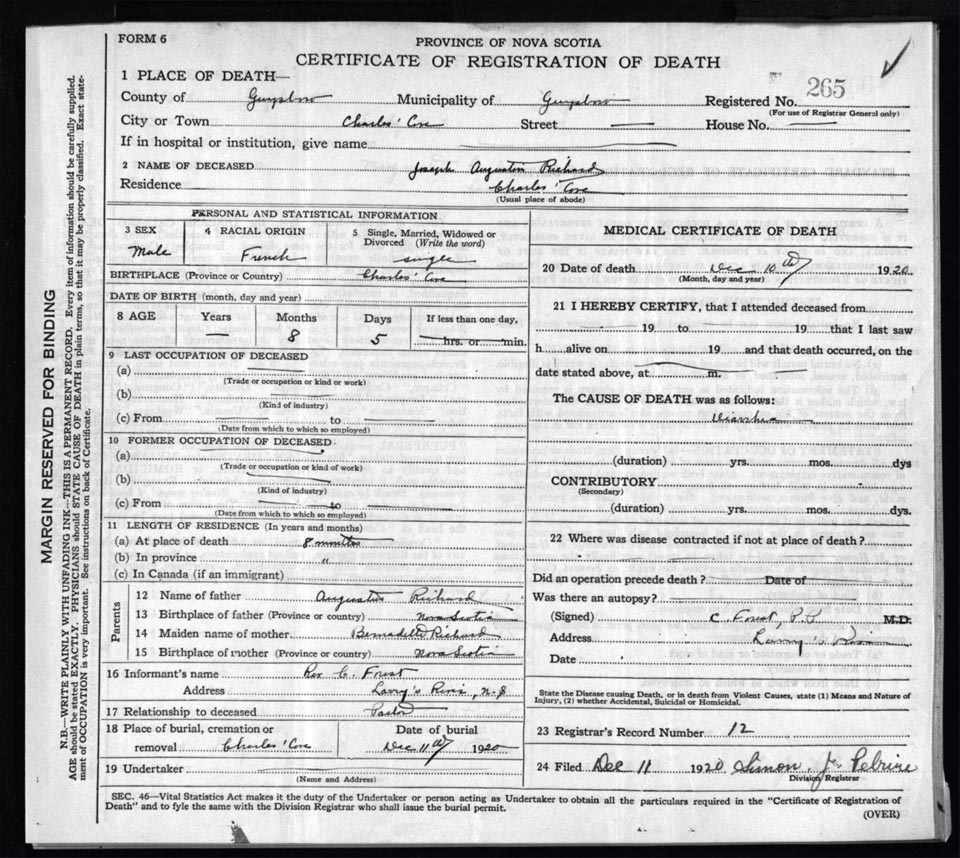 FORM 6
PROVINCE OF NOVA SCOTIA
CERTIFICATE OF REGISTRATION OF DEATH
1 PLACE OF DEATH—
County of Guysboro Municipality of Guysboro Registered No. 265
(For use of Registrar General only)
City or Town Charles' Cove Street — House No. —
If in hospital or institution, give name
2 NAME OF DECEASED Joseph Augustin Richard
Residence Charles' Cove
(Usual place of abode)
PERSONAL AND STATISTICAL INFORMATION
3 SEX 4 RACIAL ORIGIN 5 Single, Married, Widowed or Divorced (Write the word)
Male French single
BIRTHPLACE (Province or Country) Charles' Cove
DATE OF BIRTH (month, day and year)
8 AGE Years Months Days If less than one day,
— 8 5 hrs. or min.
9 LAST OCCUPATION OF DECEASED
(a)
(Trade or occupation or kind or work)
(b)
(Kind of industry)
(c) From to
(Date from which to which so employed)
10 FORMER OCCUPATION OF DECEASED.
(a)
(Trade or occupation or kind of work)
(b)
(Kind of industry)
(c) From to
(Date from which to which so employed)
11 LENGTH OF RESIDENCE (In years and months)
(a) At place of death 8 months
(b) In province "
(c) In Canada (if an immigrant)
Parents
12 Name of father Augustus Richard
13 Birthplace of father (Province or country) Nova Scotia
14 Maiden name of mother Bernadette Richard
15 Birthplace of mother (Province or country) Nova Scotia
16 Informant's name Rev. C. Forest
Address Larry's River, N.S
17 Relationship to deceased Pastor
18 Place of burial, cremation or removal Charles' Cove
Date of burial Dec 11th 1920
19 Undertaker
(Name and Address)
MEDICAL CERTIFICATE OF DEATH
20 Date of death Dec 10th 1920
(Month, day and year)
21 I HEREBY CERTIFY, that I attended deceased from
19 to 19 that I last saw
h alive on 19 and that death occurred, on the
date stated above, at m.
The CAUSE OF DEATH was as follows:
Diarrhea
(duration) yrs. mos. dys
CONTRIBUTORY
(Secondary)
(duration) yrs. mos. dys.
22 Where was disease contracted if not at place of death?
Did an operation precede death? Date of
Was there an autopsy?
(Signed) C. Forest, P.P. M.D.
Address Larry's River
Date
State the Disease causing Death, or in death from Violent Causes, state (1) Means and Nature of
Injury, (2) whether Accidental, Suicidal or Homicidal.
23 Registrar's Record Number 12
24 Filed Dec 11 1920 Simon J. Pelrine
Division Registrar
SEC. 46—Vital Statistics Act makes it the duty of the Undertaker or person acting as Undertaker to obtain all the particulars required in the "Certificate of Registration of
Death" and to fyle the same with the Division Registrar who shall issue the burial permit.
(OVER)
MARGIN RESERVED FOR BINDING
N.B.—WRITE PLAINLY WITH UNFADING INK—THIS IS A PERMANENT RECORD. Every item of information should be carefully supplied.
AGE should be stated EXACTLY. PHYSICIANS should STATE CAUSE OF DEATH in plain terms, so that it may be properly classified. Exact state-
ment of OCCUPATION is very important. See instructions on back of Certificate.